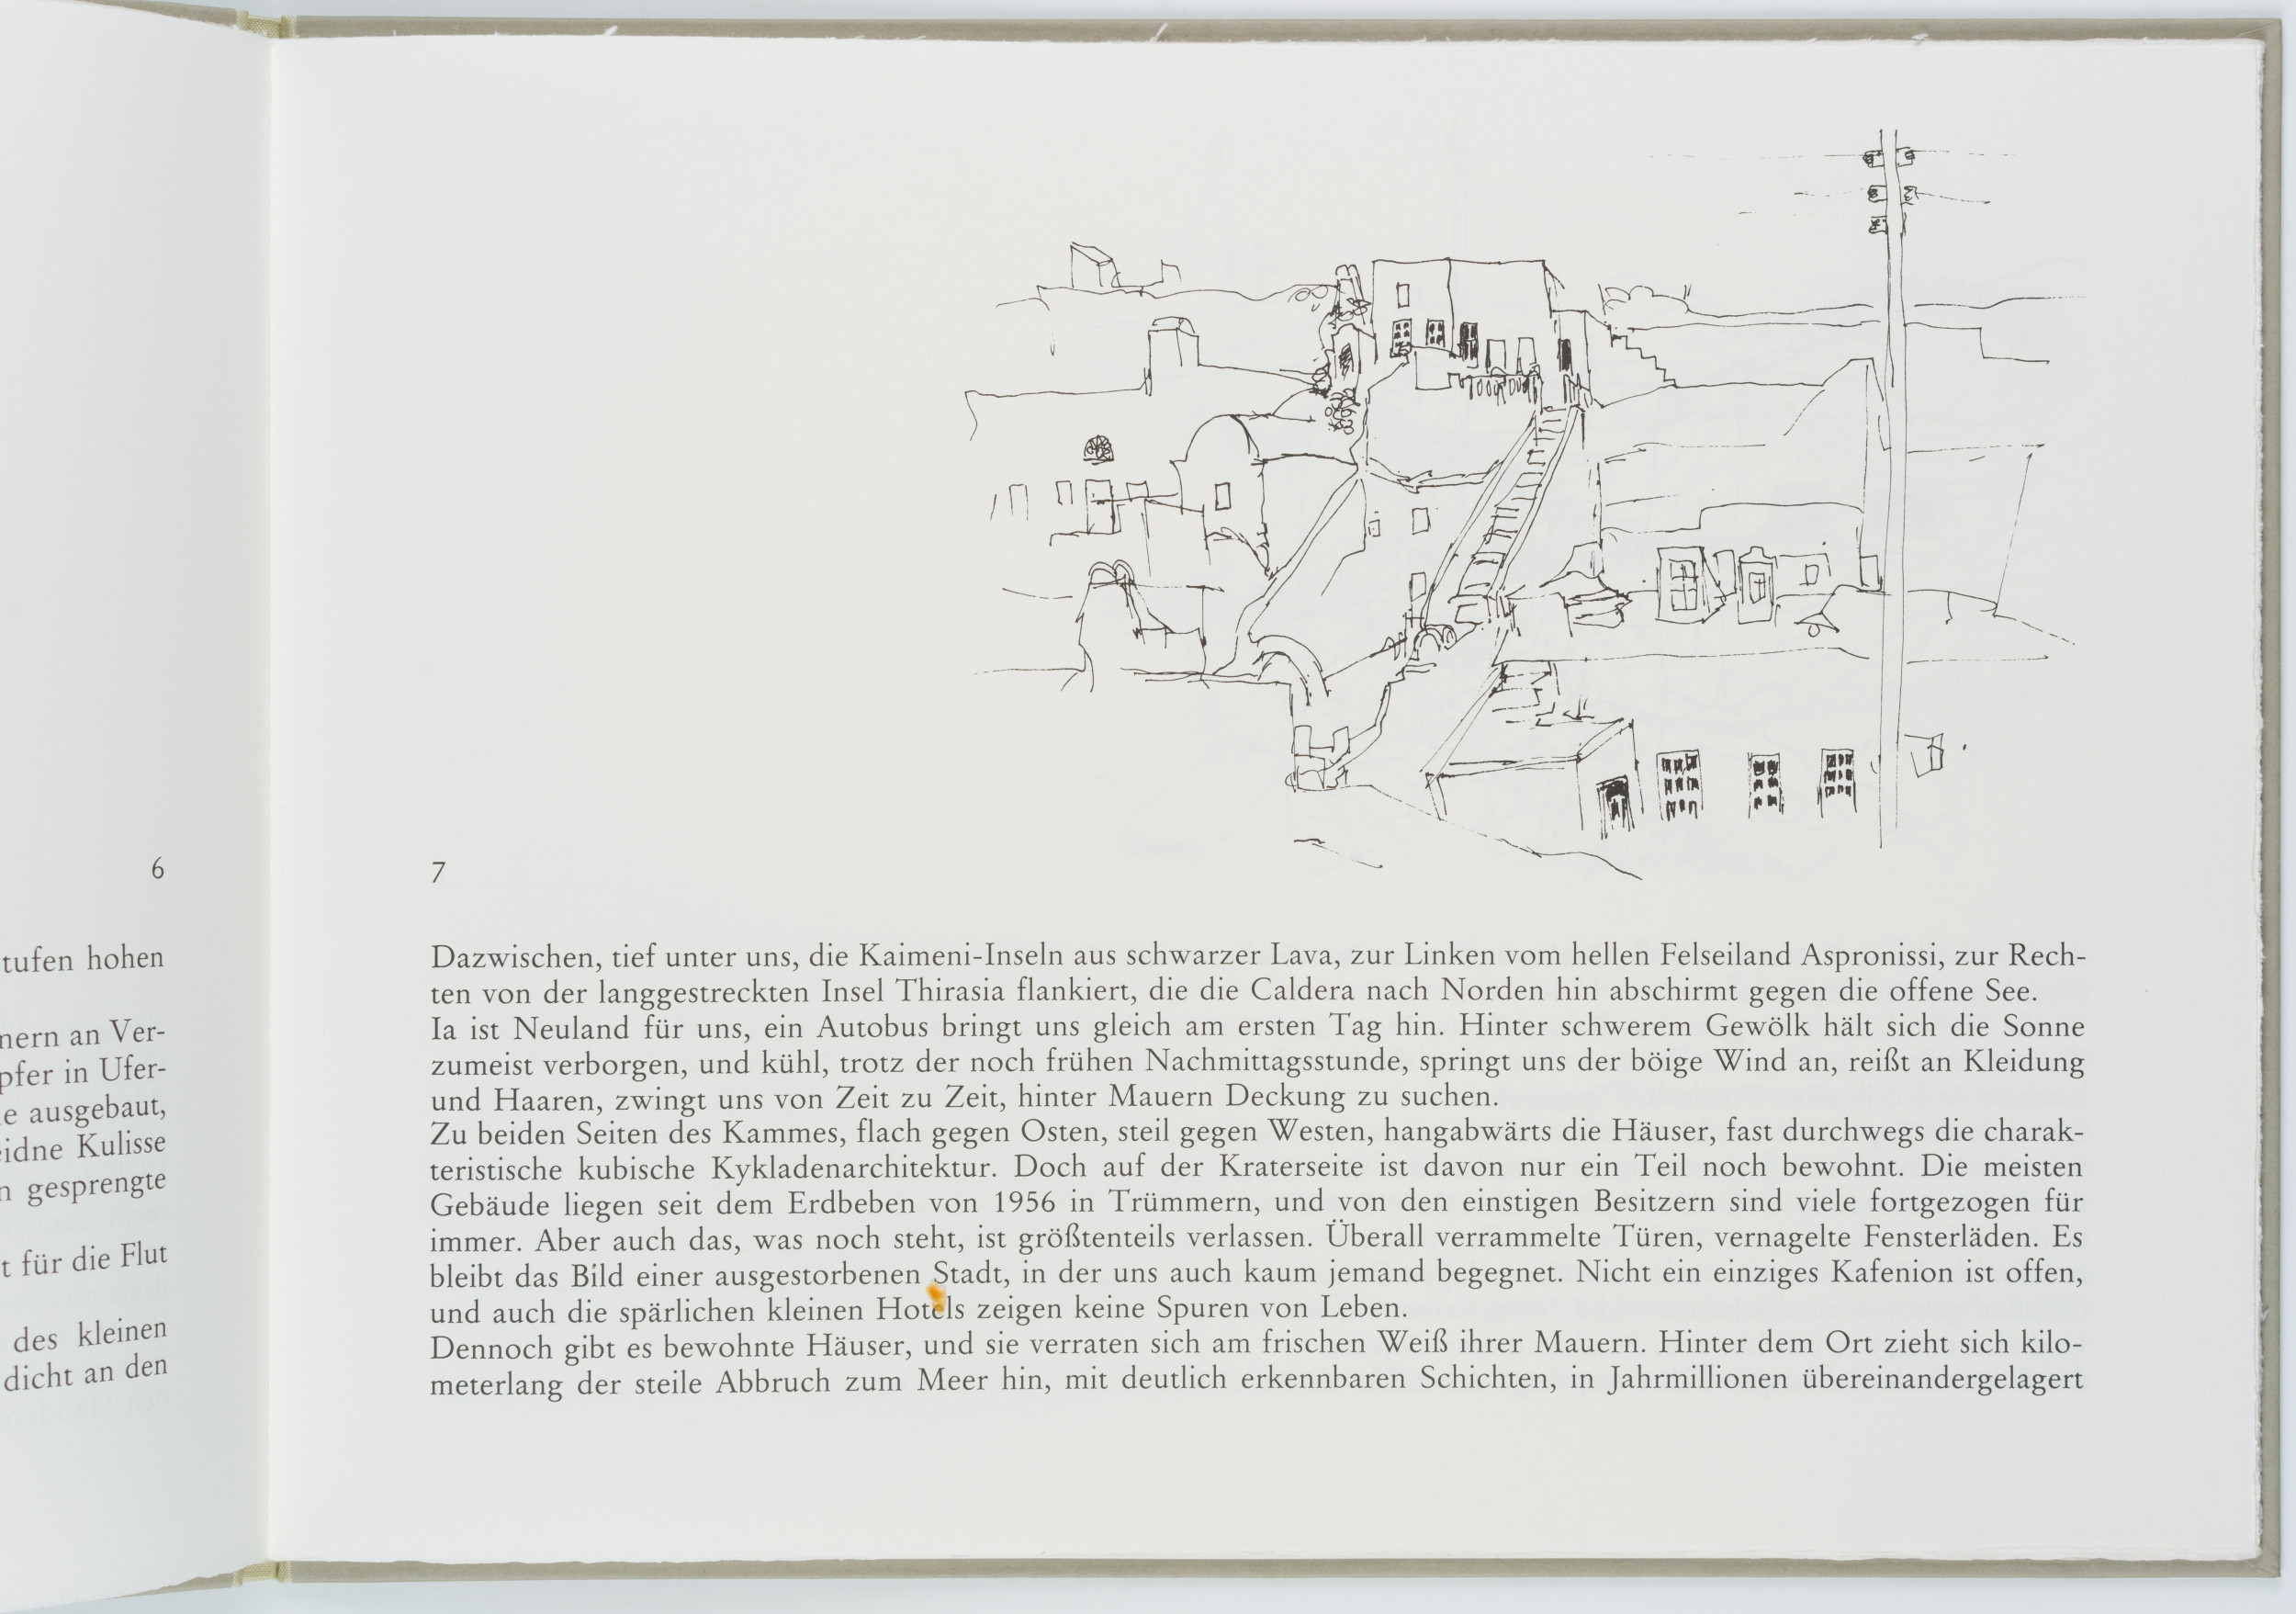 6
tufen hohen
nern an Ver-
pfer in Ufer-
e ausgebaut,
idne Kulisse
n gesprengte
t für die Flut
des kleinen
dicht an den
7
Dazwischen, tief unter uns, die Kaimeni-Inseln aus schwarzer Lava, zur Linken vom hellen Felseiland Aspronissi, zur Rech-
ten von der langgestreckten Insel Thirasia flankiert, die die Caldera nach Norden hin abschirmt gegen die offene See.
Ia ist Neuland für uns, ein Autobus bringt uns gleich am ersten Tag hin. Hinter schwerem Gewölk hält sich die Sonne
zumeist verborgen, und kühl, trotz der noch frühen Nachmittagsstunde, springt uns der böige Wind an, reißt an Kleidung
und Haaren, zwingt uns von Zeit zu Zeit, hinter Mauern Deckung zu suchen.
Zu beiden Seiten des Kammes, flach gegen Osten, steil gegen Westen, hangabwärts die Häuser, fast durchwegs die charak-
teristische kubische Kykladenarchitektur. Doch auf der Kraterseite ist davon nur ein Teil noch bewohnt. Die meisten
Gebäude liegen seit dem Erdbeben von 1956 in Trümmern, und von den einstigen Besitzern sind viele fortgezogen für
immer. Aber auch das, was noch steht, ist größtenteils verlassen. Überall verrammelte Türen, vernagelte Fensterläden. Es
bleibt das Bild einer ausgestorbenen Stadt, in der uns auch kaum jemand begegnet. Nicht ein einziges Kafenion ist offen,
und auch die spärlichen kleinen Hotels zeigen keine Spuren von Leben.
Dennoch gibt es bewohnte Häuser, und sie verraten sich am frischen Weiß ihrer Mauern. Hinter dem Ort zieht sich kilo-
meterlang der steile Abbruch zum Meer hin, mit deutlich erkennbaren Schichten, in Jahrmillionen übereinandergelagert